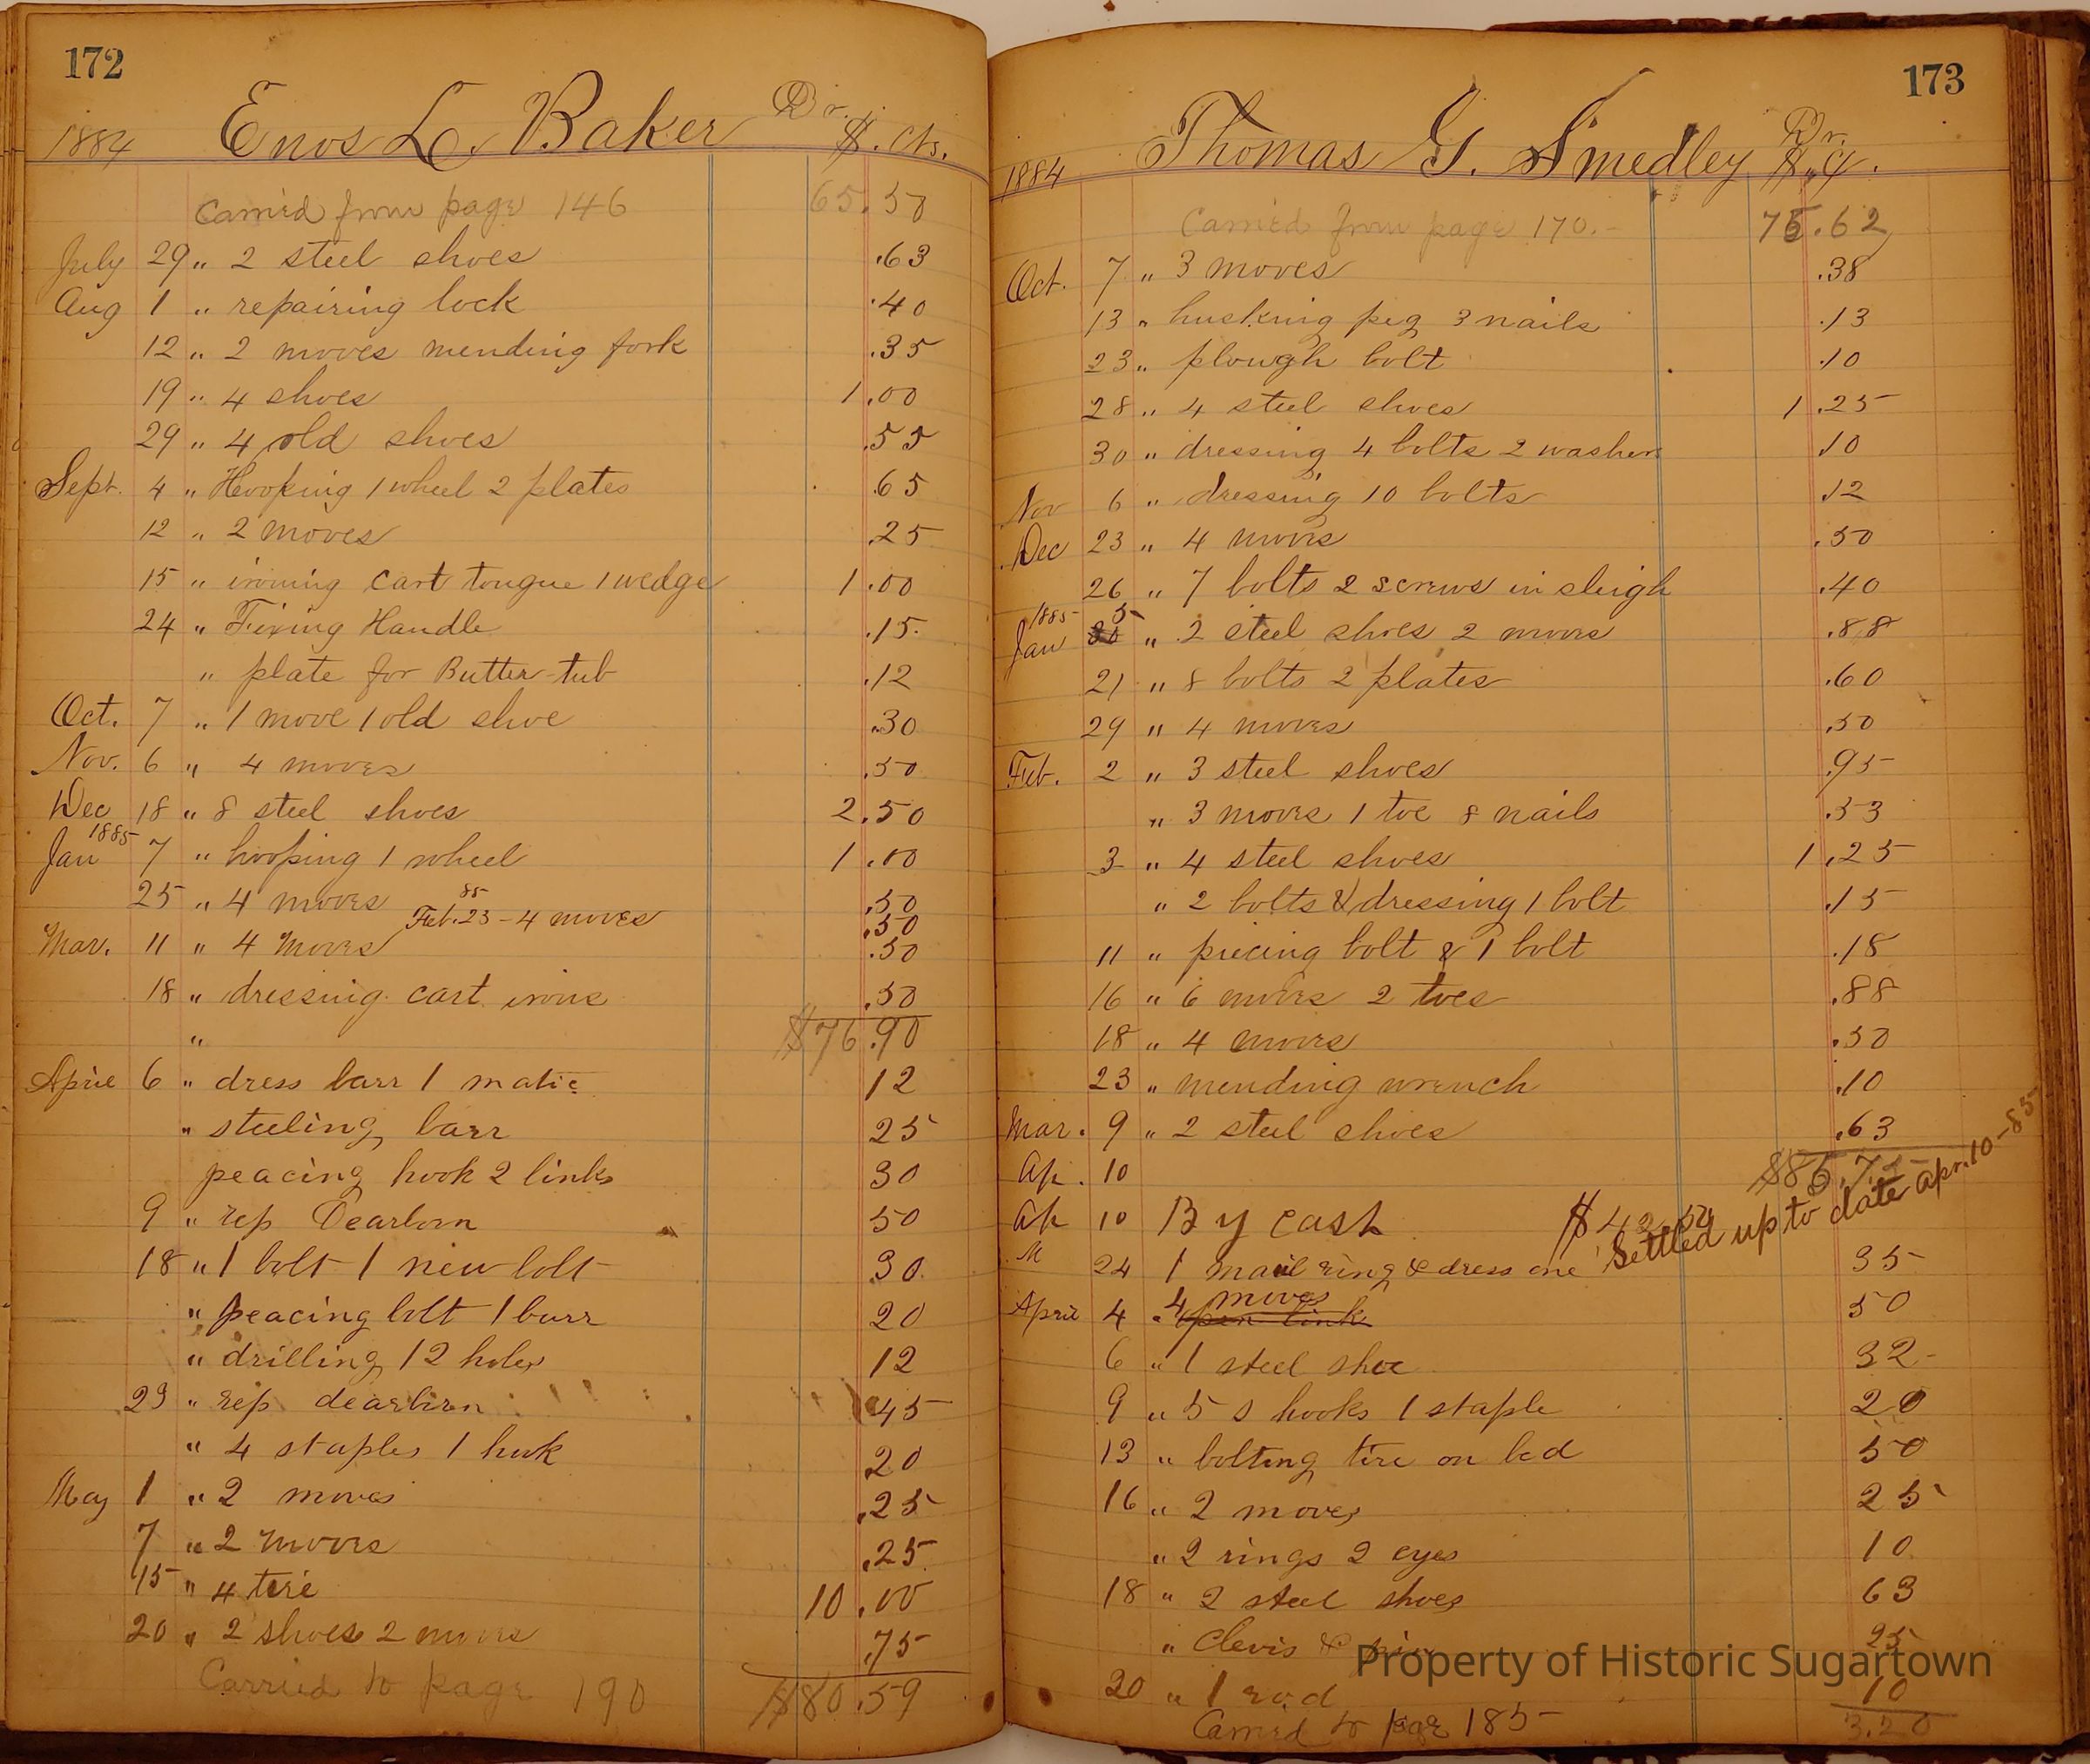 172
Enos L. Baker Dr.
1884 $. Cts.
Carried from page 146 65.50
July 29 " 2 steel shoes .63
Aug 1 " repairing lock .40
12 " 2 moves mending fork .35
19 " 4 shoes 1.00
29 " 4 old shoes .55
Sept. 4 " Hooping 1 wheel 2 plates .65
12 " 2 moves .25
15 " ironing cart tongue 1 wedge 1.00
24 " Fixing Handle .15
" plate for Butter-tub .12
Oct. 7 " 1 move 1 old shoe .30
Nov. 6 " 4 moves .50
Dec 18 " 8 steel shoes 2.50
1885
Jan 7 " hooping 1 wheel 1.00
25 " 4 moves .50
85
Feb. 23 - 4 moves .50
Mar. 11 " 4 moves .50
18 " dressing cart irons .50
" $76.90
April 6 " dress barr 1 12
" steeling barr 25
peacing hook 2 links 30
9 " rep Dearborn 50
18 " 1 bolt 1 new bolt 30
" peacing bolt 1 burr 20
" drilling 12 holes 12
23 " rep dearborn 45
" 4 staples 1 hook 20
May 1 " 2 moves .25
7 " 2 moves .25
15 " 4 tire 10.00
20 " 2 shoes 2 moves .75
Carried to page 190 $80.59
173
Thomas G. Smedley Dr.
1884 $. C.
Carried from page 170.- 75.62
Oct. 7 " 3 moves .38
13 " husking peg 3 nails .13
23 " plough bolt .10
28 " 4 steel shoes 1.25
30 " dressing 4 bolts 2 washers .10
Nov 6 " dressing 10 bolts .12
Dec 23 " 4 moves .50
26 " 7 bolts 2 screws in sleigh .40
1885 5
Jan " 2 steel shoes 2 moves .88
21 " 8 bolts 2 plates .60
29 " 4 moves .50
Feb. 2 " 3 steel shoes .95
" 3 moves 1 toe 8 nails .53
3 " 4 steel shoes 1.25
" 2 bolts & dressing 1 bolt .15
11 " piecing bolt & 1 bolt .18
16 " 6 moves 2 toes .88
18 " 4 moves .50
23 " mending wrench .10
Mar. 9 " 2 steel shoes .63
Ap. 10
Ap 10 By cash
Settled up to date apr. 10-85
M 24 1 maul ring & dress one 35
4 moves
April 4 " open link 50
6 " 1 steel shoe 32
9 " 5 s hooks 1 staple 20
13 " bolting tire on bed 50
16 " 2 moves 25
" 2 rings 2 eyes 10
18 " 2 steel shoes 63
" Clevis & pin 25
20 " 1 rod 10
Carried to page 185 3.20
Property of Historic Sugartown